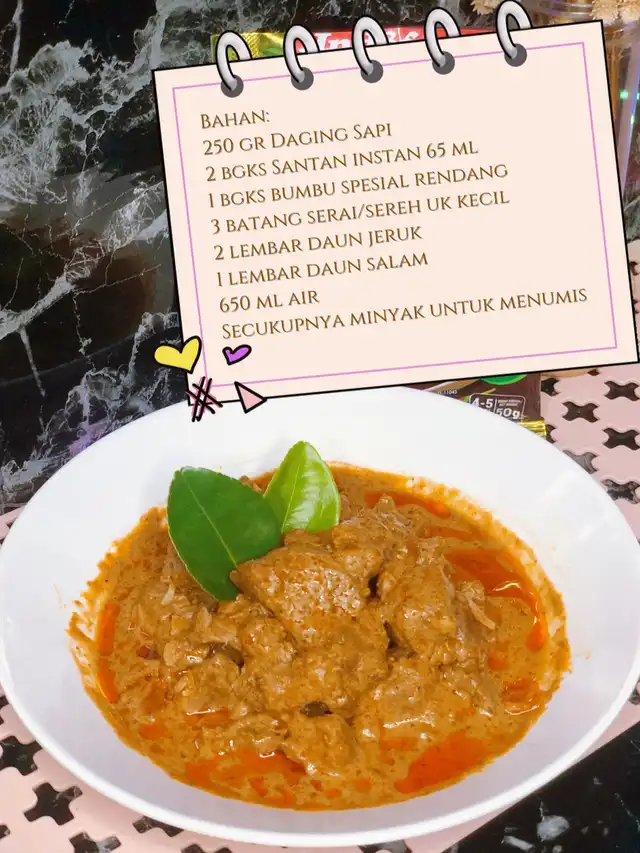 BAHAN:
250 GR DAGING SAPI
2 BGKS SANTAN INSTAN 65 ML
1 BGKS BUMBU SPESIAL RENDANG
3 BATANG SERAI/SEREH UK KECIL
2 LEMBAR DAUN JERUK
1 LEMBAR DAUN SALAM
650 ML AIR
SECUKUPNYA MINYAK UNTUK MENUMIS
4-5
50g